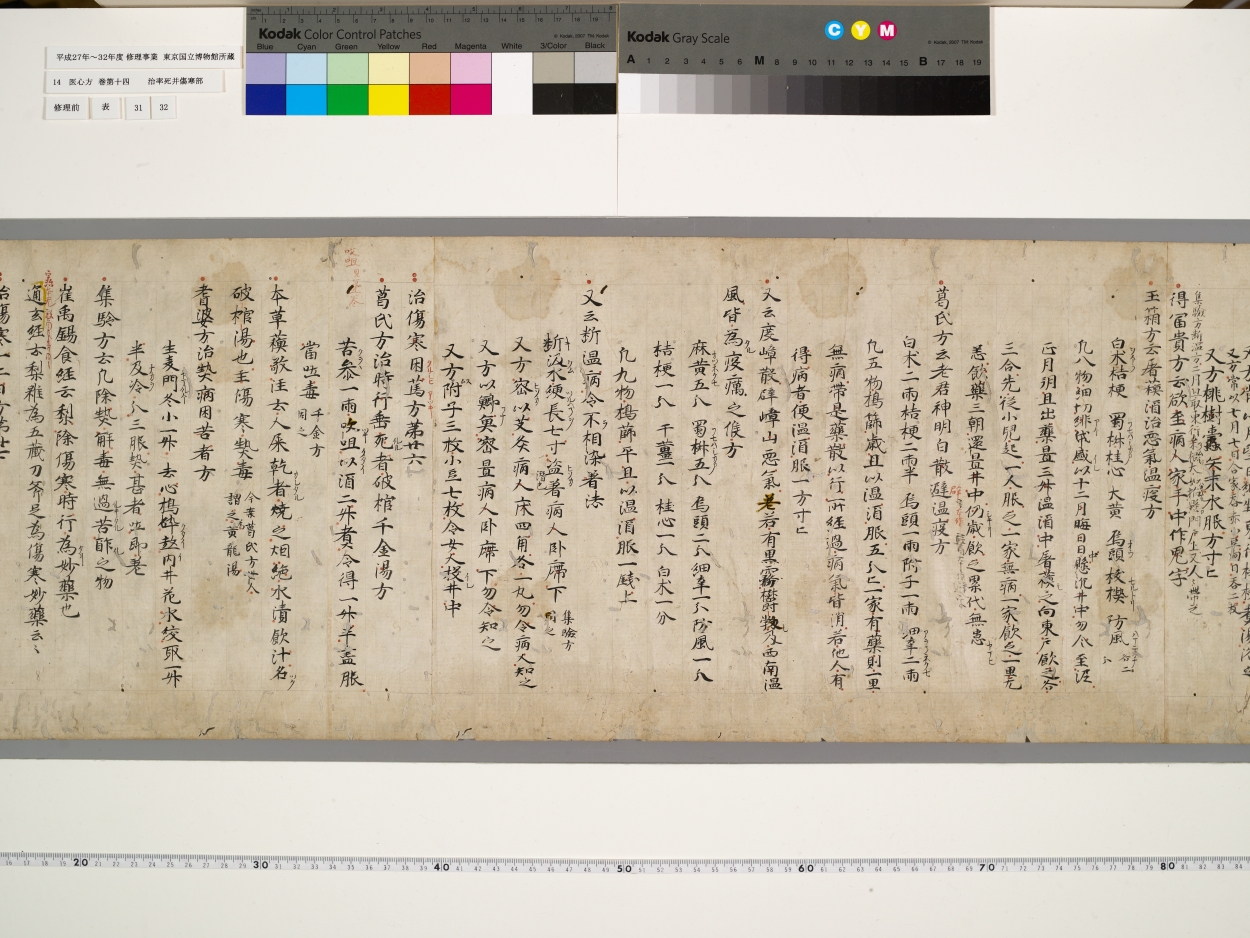 平成27年～32年度 修理事業 東京国立博物館所蔵
14 医心方 巻第十四 治卒死并傷寒部
修理前 表 31 32
Kodak Color Control Patches
© Kodak, 2007 TM: Kodak
Blue Cyan Green Yellow Red Magenta White 3/Color Black
Kodak Gray Scale
C Y M
© Kodak, 2007 TM: Kodak
A 1 2 3 4 5 6 M 8 9 10 11 12 13 14 15 B 17 18 19
又方桃樹蠹矢末水服方寸匕
得富貴方云欲至病人家手中作鬼字
玉葙方云屠蘇酒治惡氣温疫方
白朮桔梗 蜀椒桂心 大黄 烏頭 菝楔 防風
凡八物細切緋袋盛以十二月晦日日中懸沉井中勿令至泥
正月朔旦出藥置三升温酒中屠蘇之向東戸飲之各
三合先從小兒起一人服之一家無病一家飲之一里无
恙飲藥三朝還置井中仍歳飲之累代無恙
葛氏方云老君神明白散避温疫方
白朮二兩桔梗一兩半 烏頭一兩附子一兩 細辛二兩
凡五物擣篩歳旦以温酒服五分匕一家有藥則一里
無病帶是藥散以行所經過病氣皆消若他人有
得病者便温酒服一方寸匕
又云度嶂散辟嶂山惡氣若有黒霧欝勃及西南温
風皆為疫癘之候方
麻黄五分 蜀椒五分 烏頭二分細辛一分防風一分
桔梗一分 干薑一分 桂心一分 白朮一分
凡九物擣篩平旦以温酒服一錢上
又云断温病令不相染著法
断汲水綆長七寸盗著病人卧席下 集驗方同之
又方密以艾灸病人床四角各一丸勿令病人知之
又方以鯽魚密置病人卧席下勿令知之
又方附子三枚小豆七枚令女人投井中
治傷寒困篤方第廿六
葛氏方治時行垂死者破棺千金湯方
苦參一兩㕮咀以酒二升煮令得一升半盡服
當吐毒 千金方同之
本草蘓敬注云人屎乾者燒之烟絶水漬飲汁名
破棺湯也主傷寒熱毒 今案葛氏方世人謂之黄龍湯
耆婆方治熱病困苦者方
生麦門冬小一升 去心擣碎熬內井花水絞取一升
半及冷分三服熱甚者吐即老
集驗方云凡除熱解毒無過苦酢之物
崔禹錫食經云梨除傷寒時行為妙藥也
通玄經云梨雖為五藏刀斧足為傷寒妙藥云々
20 30 40 50 60 70 80